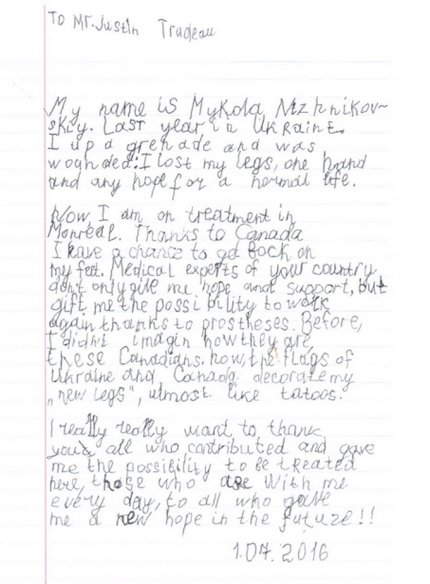 To Mr. Justin Trudeau
My name is Mykola Nizhnikov-
skiy. Last year, in Ukraine
I up a grenade and was
wounded: I lost my legs, one hand
and any hope for a normal life.
Now, I am on treatment in
Monreal. Thanks to Canada
I have a chance to go back on
my feet. Medical experts of your country
don't only give me hope and support, but
gift me the possibility to walk
again thanks to prostheses. Before,
I didn't imagin how they are,
these Canadians. Now, the flags of
Ukraine and Canada decorate my
„new legs", almost like tatoos.
I really really want to thank
you all who contributed and gave
me the possibility to be treated
here, those who are with me
every day, to all who gave
me a new hope in the future!!
1.04.2016